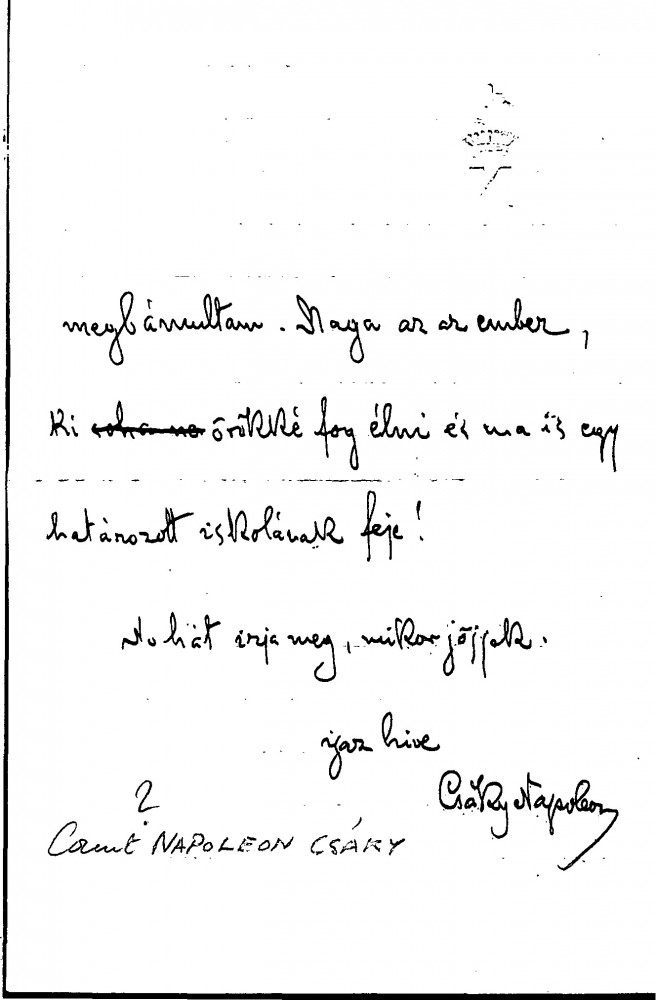 megbámultam. Maga az az ember,
ki soha ne örökké fog élni és ma is egy
határozott iskolának feje!
No hát irja meg, mikor jöjjek.
igaz hive
Csáky Napoleon
?
Count NAPOLEON CSÁKY